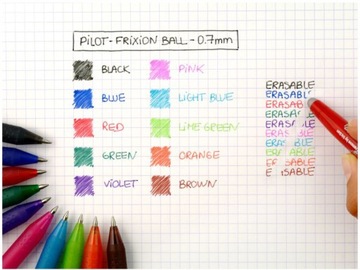 PILOT-FRIXION BALL-0.7mm
BLACK
BLUE
RED
GREEN
VIOLET
PINK
LIGHT BLUE
LIME GREEN
ORANGE
BROWN
ERASABLE
ERASABL
ERASAB
ERASA LE
ERAS BLE
ERAS BLE
ERA BLE
ER ABLE
ER SABLE
E SABLE